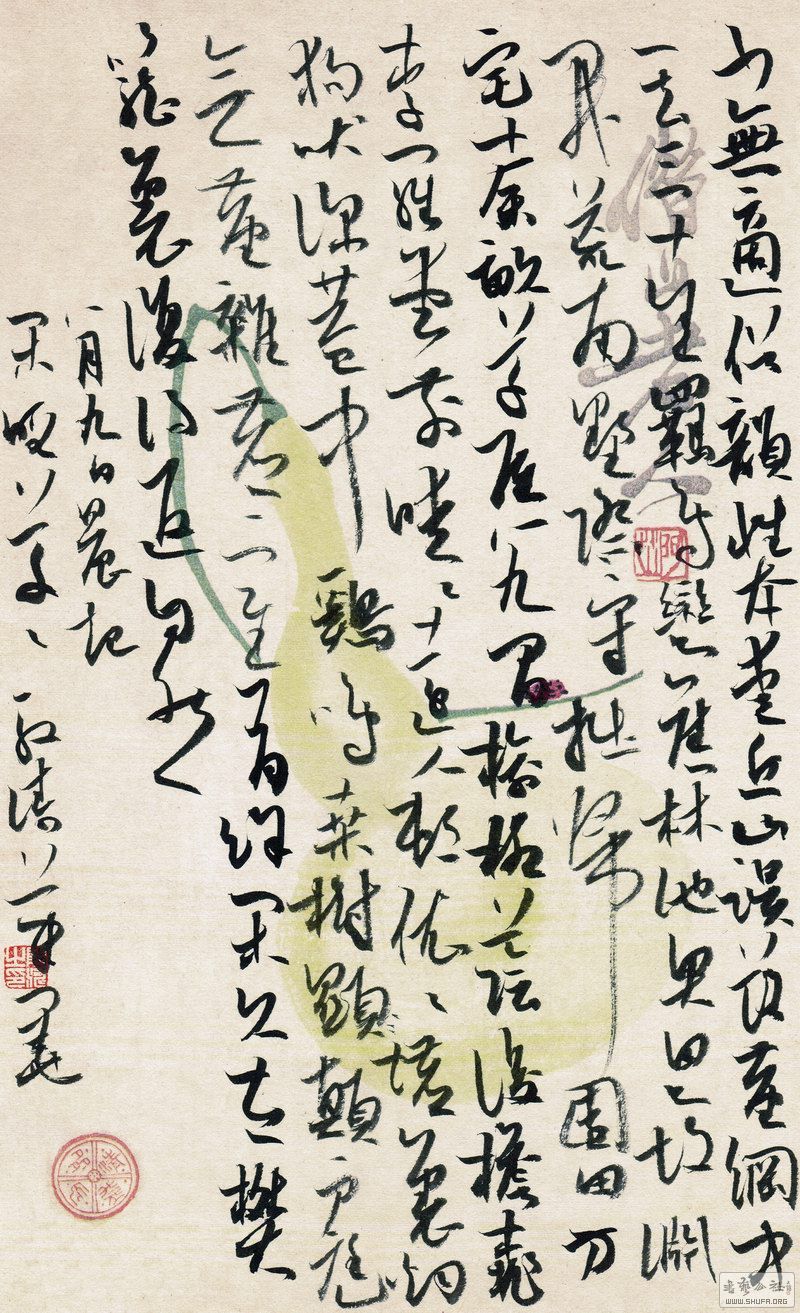 少無適俗韻性本愛丘山誤落塵網中
一去三十年羈鳥戀舊林池魚思故淵
開荒南野際守拙歸園田方
宅十余畝草屋八九間榆柳蔭後檐桃
李羅堂前曖〻遠人村依〻墟裏烟
狗吠深巷中鷄鳴桑樹顯顛户庭
無塵雜虛室有餘閑久在樊
籠裏復得返自然
八月九日晨起
借山老人
書藝公社
WWW.SHUFA.ORG